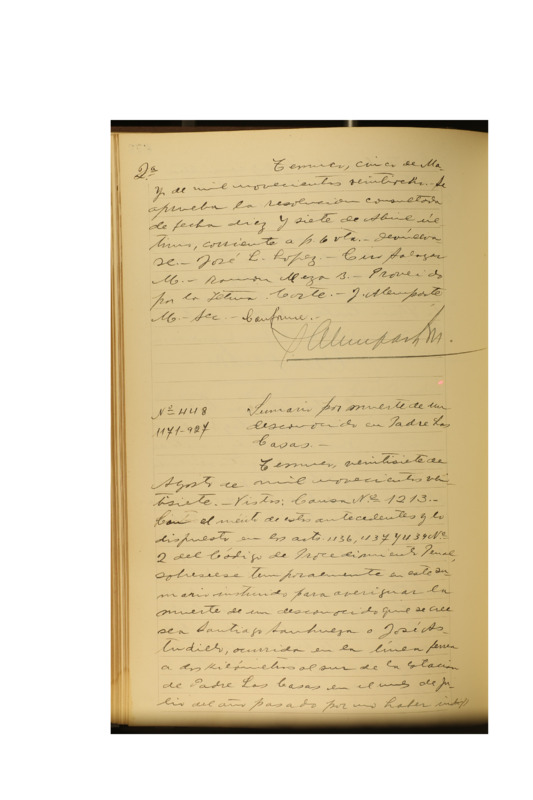 2ª
Temuco, cinco de Ma-
yo de mil novecientos veintiocho.- Se
aprueba la resolución consultada
de fecha diez y siete de Abril úl-
timo, corriente a f 6 vta.- Devuélva
se.- José L. Lopez.- Ciro Salazar
M.- Ramón Meza B.- Proveído
por la Iltma. Corte.- J. Alemparte
M.- Sec.- Conforme.-
J Alemparte M.
Nº 4418
1171-927
Sumario por muerte de un
desconocido en Padre Las
Casas.-
Temuco, veintisiete de
Agosto de mil novecientos vein
tisiete.- Vistos: Causa Nº 1213.-
Con el mérito de estos antecedentes y lo
dispuesto en los arts. 1136, 1137 y 1139 Nº
2 del Código de Procedimiento Penal,
sobreseese temporalmente en este su-
mario instruido para averiguar la
muerte de un desconocido que se cree
sea Santiago Sanhueza o José As-
tudillo, ocurrida en la línea ferrea
a dos kilómetros al sur de la estación
de Padre Las Casas en el mes de Ju-
lio del año pasado por no haber